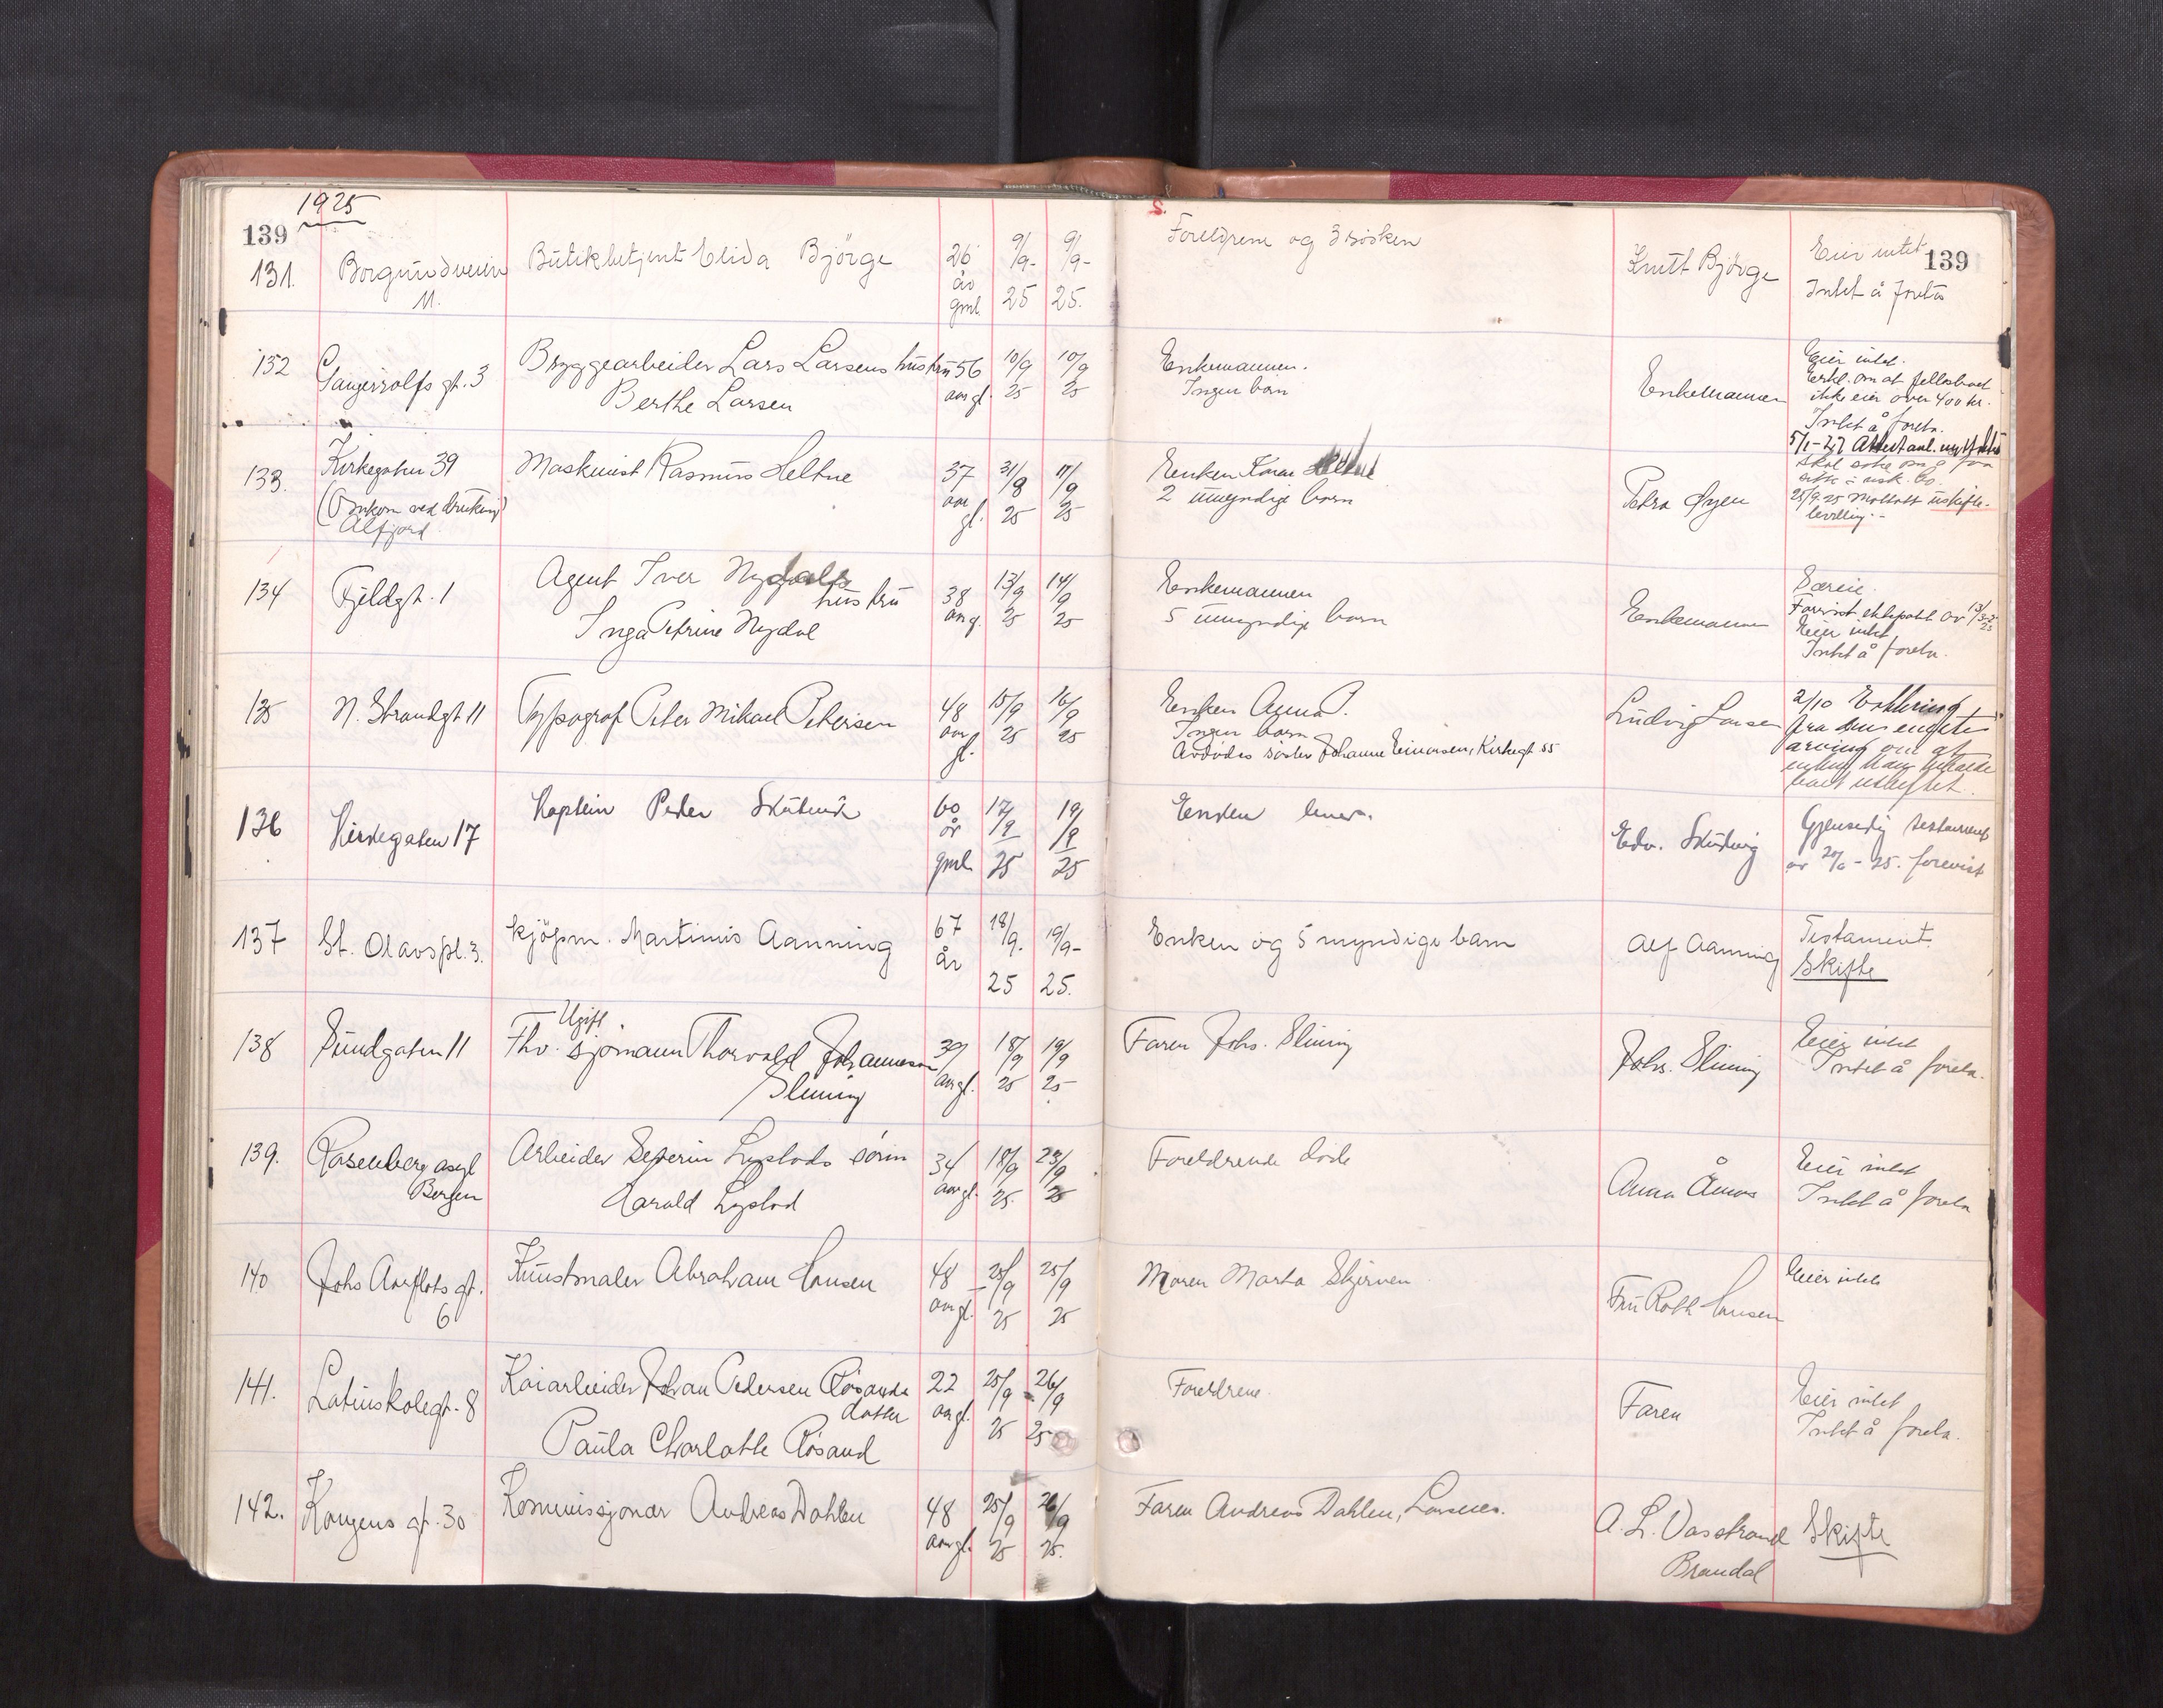 1925
139
S.
139
131. Borgundveien 11. Butikbetjent Elida Bjørge 26 år gml. 9/9- 25 9/9- 25. Foreldrene og 3 søsken Knutt Bjørge Eier intet
Intet å foreta
132 gt. 3 Bryggearbeider Lars Larsens hustru
Berthe Larsen 56 aar gl. 10/9 25 10/9 25 Enkemannen.
Ingen barn Enkemannen Eier intet.
Erkl. om at fellesboet
ikke eier over 400 kr.
Intet å foreta.
133. Kirkegaten 39
(Omkom ved drukning)
Maskinist Rasmus Heltne 37 aar gl. 31/8 25 11/9 25 Enken
2 umyndige barn Petra Øyen 5/1-27 Attest
25/9 25 Mottatt uskifte-
bevilling.-
134 Fjeldgt. 1 Agent Iver Nydals
hustru
Inga Petrine Nydal 38 aar g. 13/9 25 14/9 25 Enkemannen
5 umyndige barn Enkemannen Særeie.
Eier intet
Intet å foreta.
135 N. Strandgt 11 Typograf Peter Mikael Petersen 48 aar gl. 15/9 25 16/9 25 Enken Anna P.
Ingen barn
Avdødes søster Johanne Einarsen, Kirkegt 55 Ludvig Larsen 2/10 Erklæring
fra den eneste
arving om at
136 Kirkegaten 17 Kaptein Peder 60 år gml. 17/9 25 19/9 25 Enken lever. Edv. Gjensidig testament
forevist
137 St. Olavspl. 3. Kjøpm. Martinus Aanning 67 år 18/9. 25 19/9- 25. Enken og 5 myndige barn Alf Aanning Testament.
Skifte
138 Sundgaten 11 Ugift
Fhv. sjømann Thorvald Johannesen
Slinning 39 aar gl. 18/9 25 19/9 25 Faren Johs. Slinning Johs. Slinning Eier intet
Intet å foreta.
139. Rosenberg asyl
Bergen Arbeider Severin Lystads sønn
Harald Lystad 34 aar gl. 18/9 25. 23/9 25 Foreldrende døde Anna Eier intet
Intet å foreta
140 Johs Aarflots gt.
6 Kunstmaler Abraham Hansen 48 aar gl. 25/9 25 25/9 25 Moren Marta Skjerven Fru Hansen Eier intet
141. Latinskolegt. 8 Kaiarbeider Johan Pedersen Røsands
datter
Paula Charlotte Røsand 22 aar gl. 25/9 25 26/9 25 Foreldrene. Faren Eier intet
Intet å foreta.
142. Kongens gt. 30 Kommissjonær Andreas Dahlen 48 aar gl. 25/9 25 26/9 25. Faren Andreas Dahlen, A. L. Vasstrand
Brandal Skifte